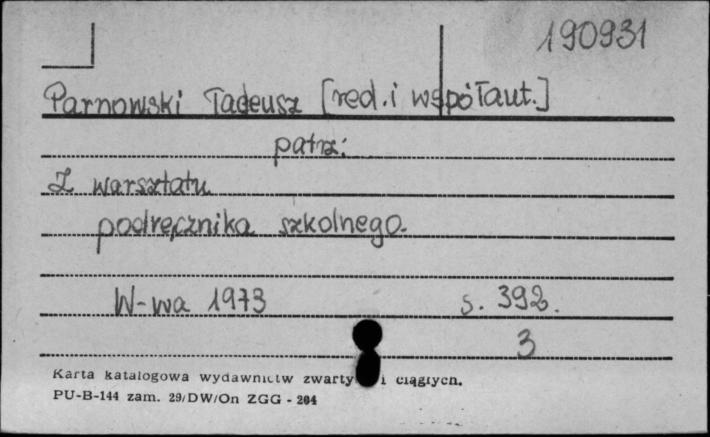 190931
Parnowski Tadeusz [red. i współaut.]
patrz:
Z warsztatu
podręcznika szkolnego.
W-wa 1973 s. 392.
3
Karta katalogowa wydawnictw zwarty i ciągłych.
PU-B-144 zam. 29/DW/On ZGG - 204